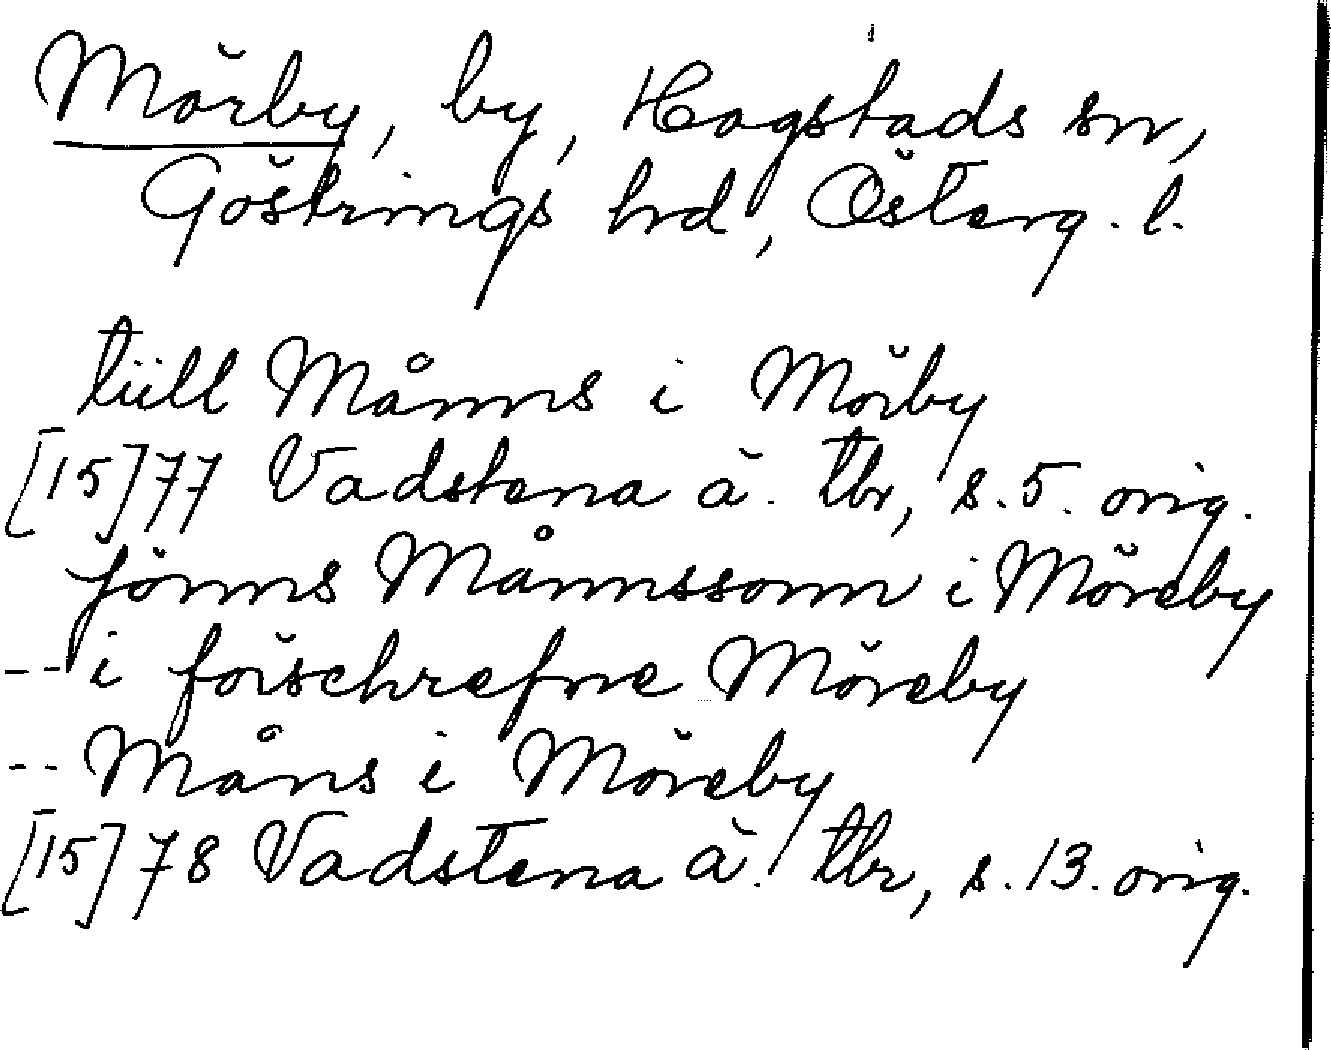 Mörby, by, Hogstads sn,
Göstrings hrd, Österg. l.
tiill Månns i Mörby
[15]77 Vadstena ä. tbr, s. 5. orig.
Jönns Månnssonn i Möreby
-- i förschrefne Möreby
-- Måns i Möreby
[15]78 Vadstena ä. tbr, s. 13. orig.